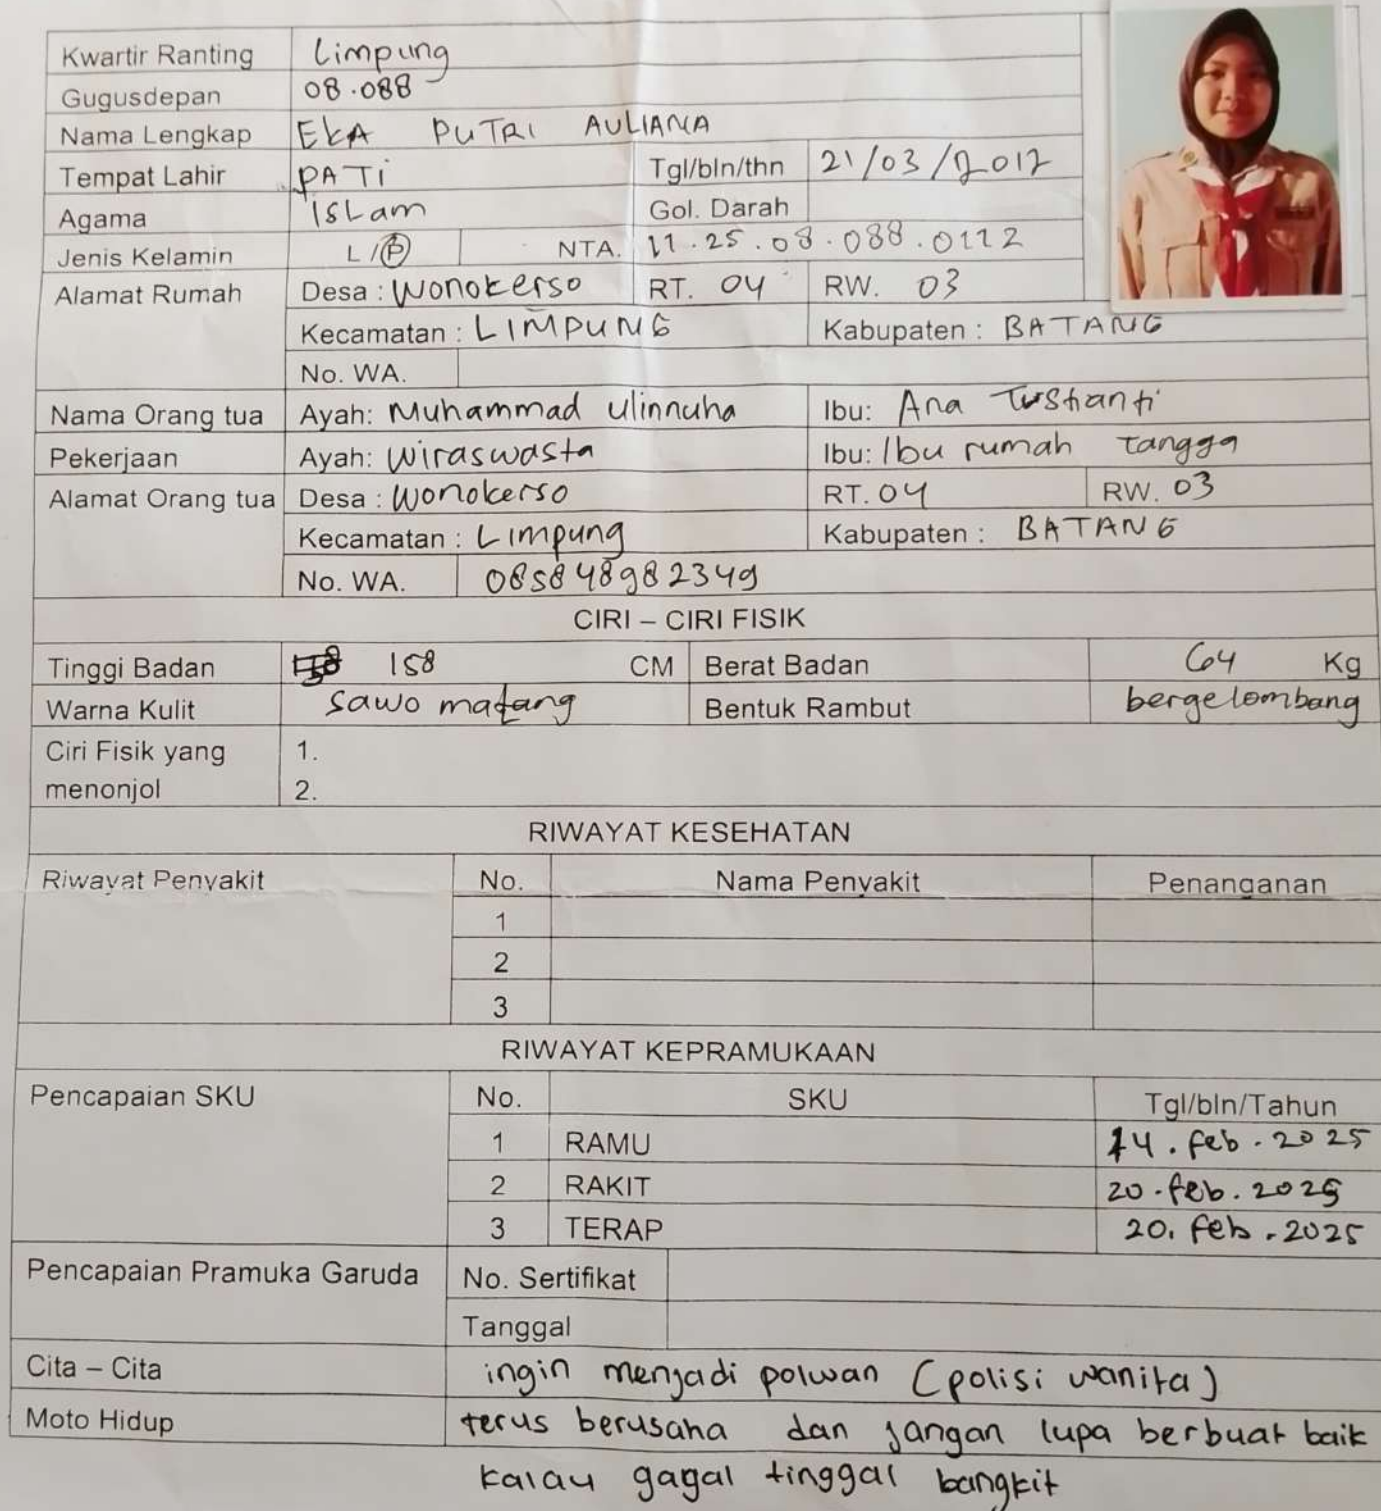 Kwartir Ranting Limpung
Gugusdepan 08.088
Nama Lengkap EKA PUTRI AULIANA
Tempat Lahir PATI Tgl/bln/thn 21/03/2012
Agama Islam Gol. Darah
Jenis Kelamin L/P NTA. 11.25.08.088.0112
Alamat Rumah Desa : Wonokerso RT. 04 RW. 03
Kecamatan : LIMPUNG Kabupaten : BATANG
No. WA.
Nama Orang tua Ayah: Muhammad Ulinnuha Ibu: Ana
Pekerjaan Ayah: Wiraswasta Ibu: Ibu rumah tangga
Alamat Orang tua Desa : Wonokerso RT. 04 RW. 03
Kecamatan : Limpung Kabupaten : BATANG
No. WA. 085848982349
CIRI – CIRI FISIK
Tinggi Badan 158 CM Berat Badan 64 Kg
Warna Kulit Sawo matang Bentuk Rambut bergelombang
Ciri Fisik yang 1.
menonjol 2.
RIWAYAT KESEHATAN
Riwayat Penyakit No. Nama Penyakit Penanganan
1
2
3
RIWAYAT KEPRAMUKAAN
Pencapaian SKU No. SKU Tgl/bln/Tahun
1 RAMU 14. feb. 2025
2 RAKIT 20. feb. 2025
3 TERAP 20. feb. 2025
Pencapaian Pramuka Garuda No. Sertifikat
Tanggal
Cita – Cita ingin menjadi polwan (polisi wanita)
Moto Hidup terus berusaha dan jangan lupa berbuat baik
kalau gagal tinggal bangkit